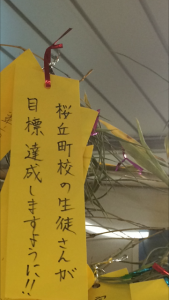 桜丘町校の生徒さんが
目標達成しますように!!